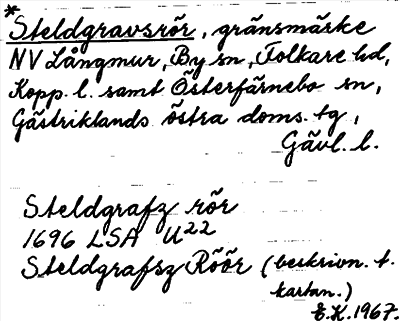 *
Steldgravsrör, gränsmärke
NV Långmur, By sn, Folkare hd,
Kopp. l. samt Österfärnebo sn,
Gästriklands östra doms. tg,
Gävl. l.
Steldgrafz rör
1696 LSA U22
Steldgrafsz Röör (beskrivn. t.
kartan.)
E.K. 1967.